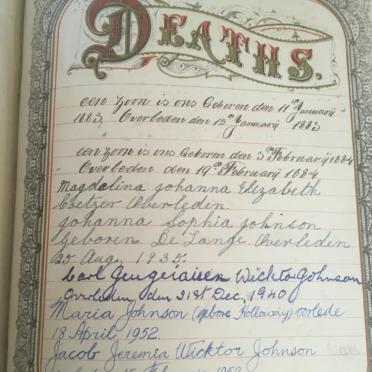 DEATHS.
een zoon is ons Geboren den 11de Januarij
1883. Overleden den 15de Januarij 1883
een zoon is ons Geboren den 3de Februarij 1884
Overleden den 19de Februarij 1884
Magdelina Johanna Elizabeth
Coetzer Overleden.
Johanna Sophia Johnson
Geboren De Lange Overleden
25 Aug. 1935.
Carl Wicktor Johnson
Overleden den 21st Dec. 1940
Maria Johnson (gebore Holloway) oorlede
18 April 1952.
Jacob Jeremia Wicktor Johnson